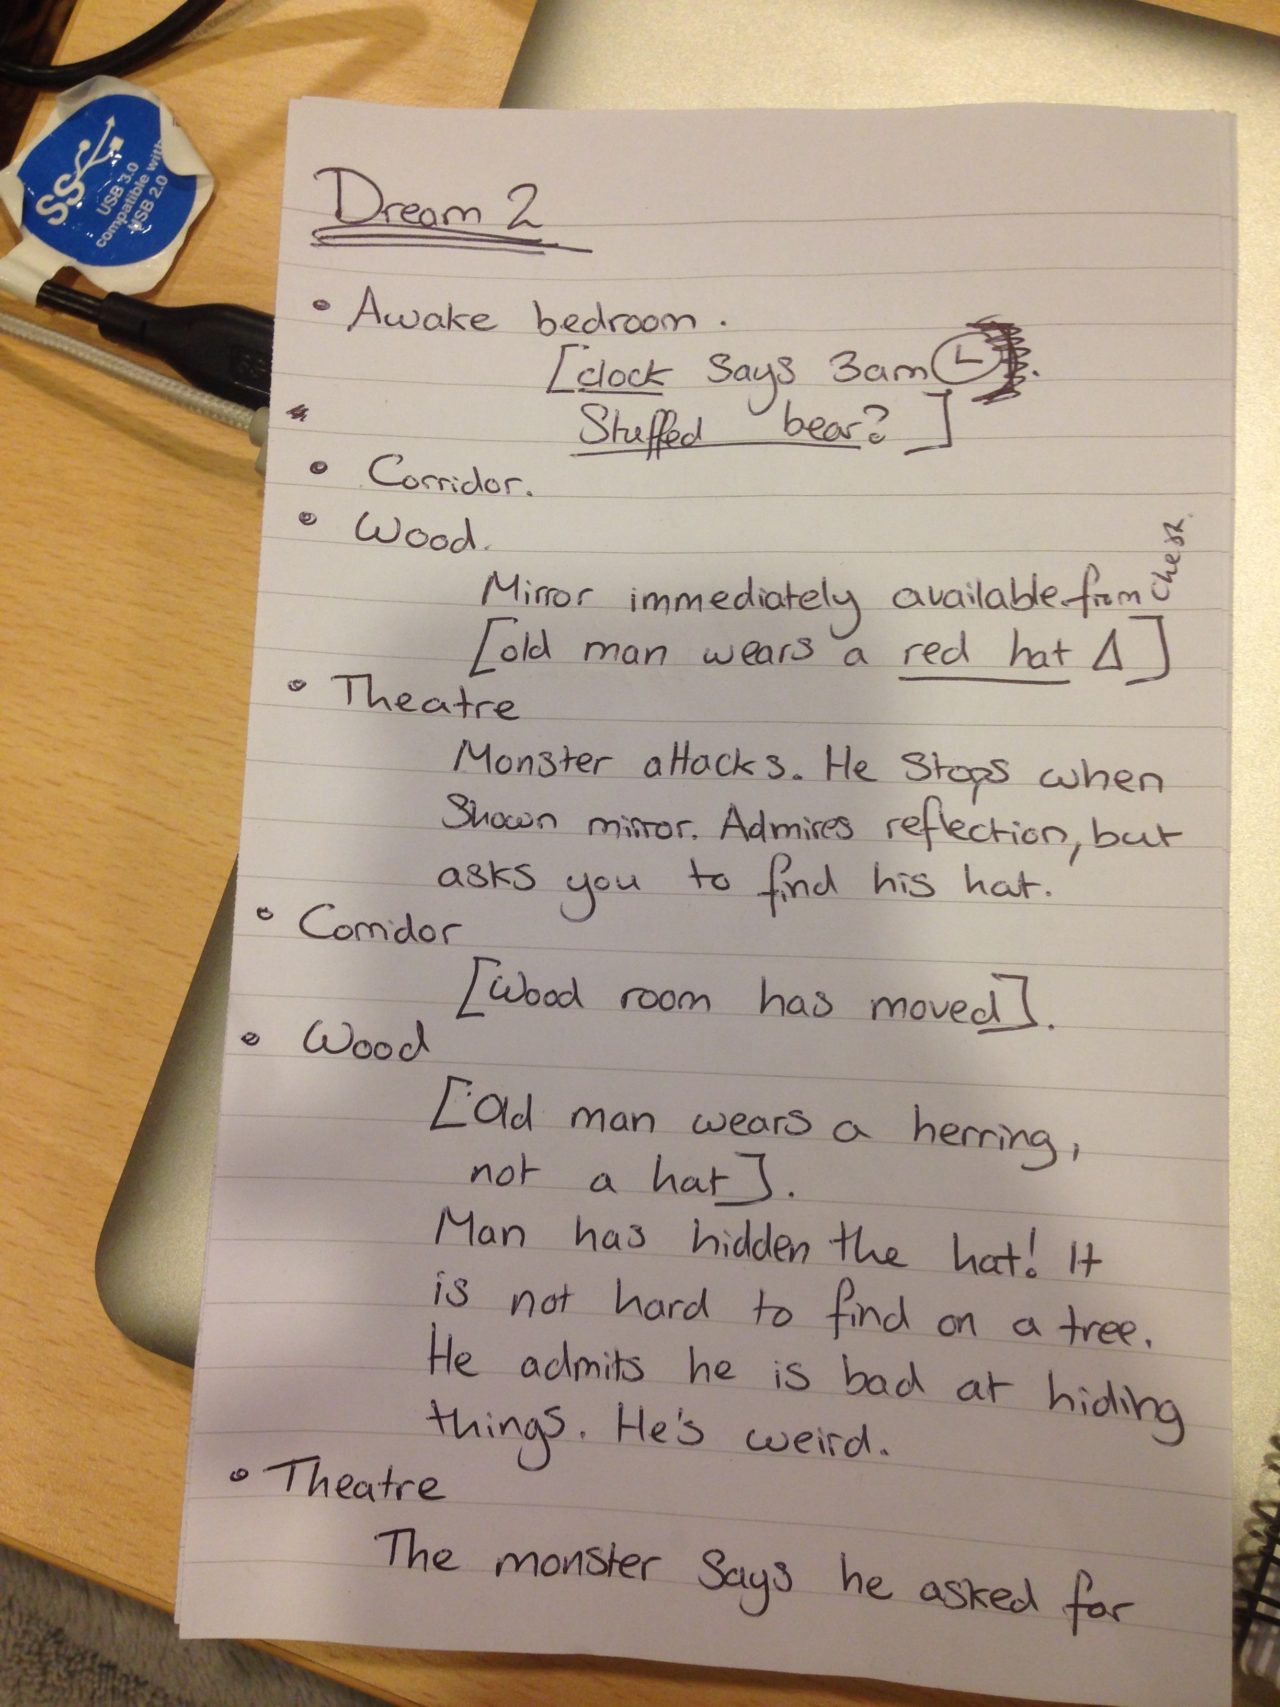 SS
USB 3.0
compatible with
USB 2.0
Dream 2
• Awake bedroom.
[clock says 3am.
Stuffed bear?]
• Corridor.
• Wood.
Mirror immediately available from chest.
[old man wears a red hat Δ]
• Theatre
Monster attacks. He stops when
shown mirror. Admires reflection, but
asks you to find his hat.
• Corridor
[Wood room has moved].
• Wood
[Old man wears a herring,
not a hat].
Man has hidden the hat! It
is not hard to find on a tree.
He admits he is bad at hiding
things. He's weird.
• Theatre
The monster says he asked for